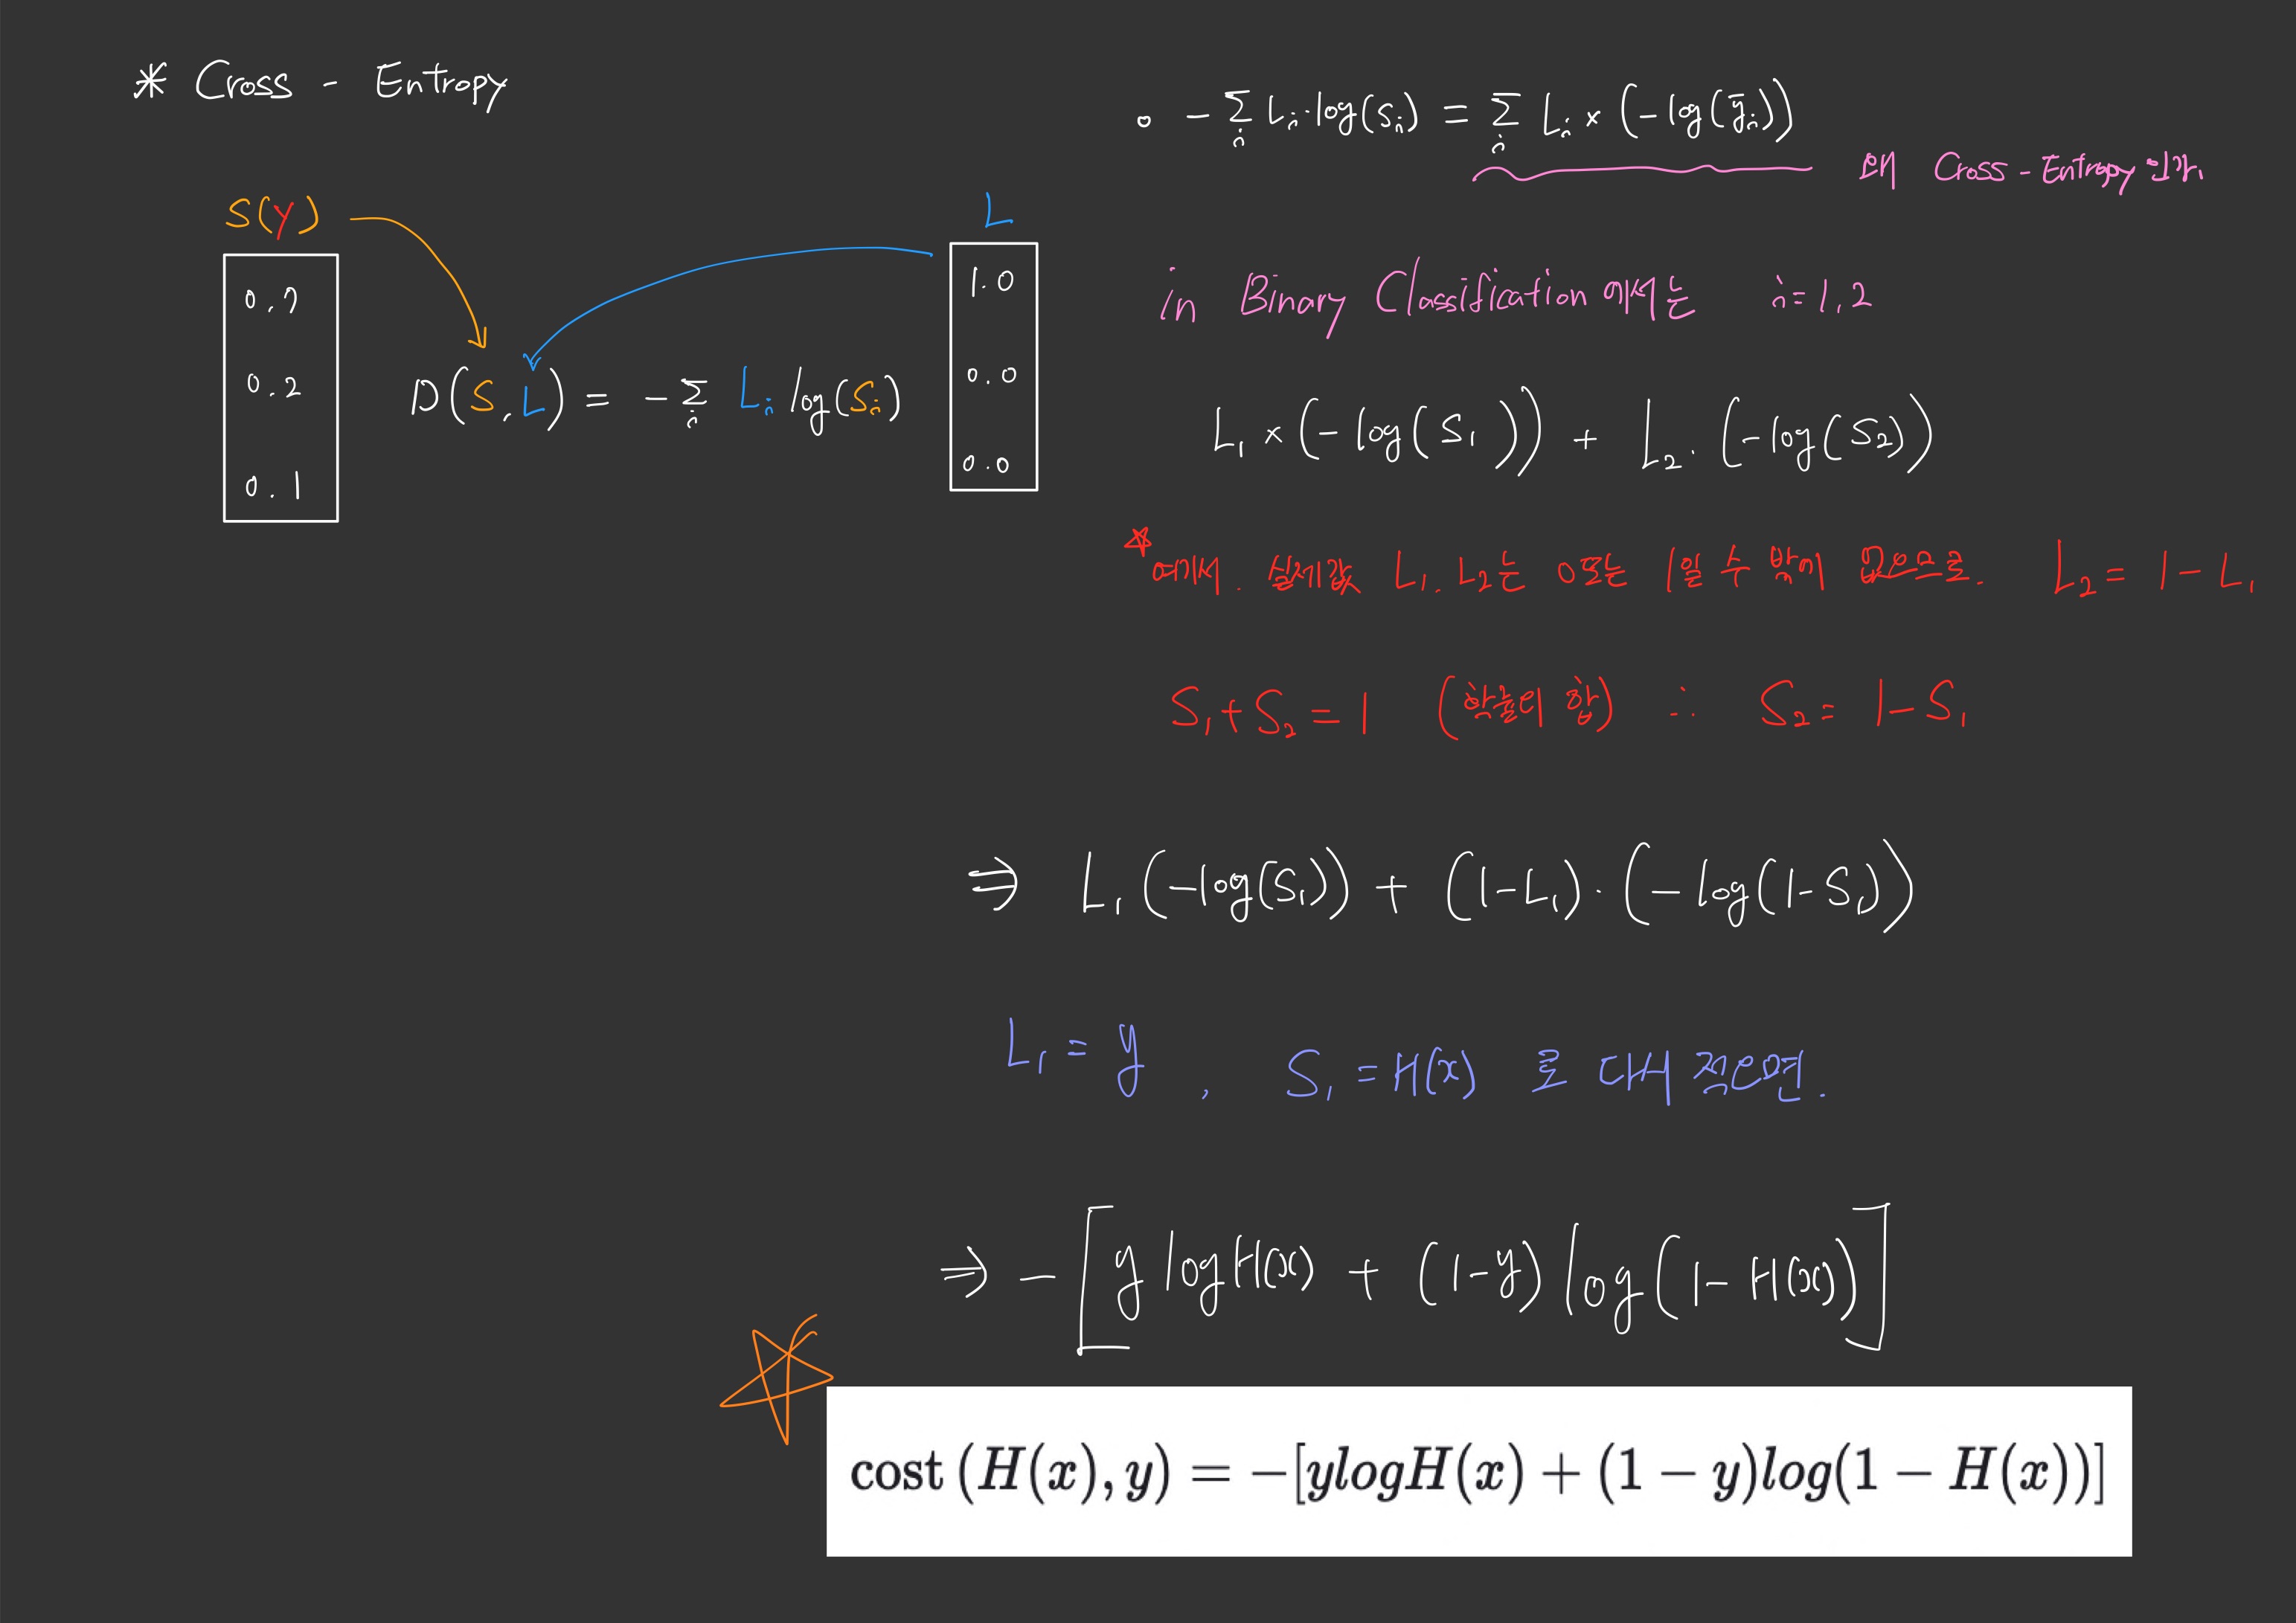 * Cross - Entropy
S(Y)
0.7
0.2
0.1
D(S, L) = - Σᵢ Lᵢ log(Sᵢ)
L
1.0
0.0
0.0
o - Σᵢ Lᵢ · log(Sᵢ) = Σᵢ Lᵢ × (-log(ȳᵢ))
Cross-Entropy
in Binary Classification 에서는 i=1,2
L₁ × (-log(S₁)) + L₂ · (-log(S₂))
☆ 여기서. L₁, L₂는 0또는 1일 수 밖에 없으므로. L₂ = 1 - L₁
S₁ + S₂ = 1 (확률의 합) ∴ S₂ = 1 - S₁
⇒ L₁(-log(S₁)) + (1-L₁) · (-log(1-S₁))
L₁ = y , S₁ = H(x) 로 대 적으면.
⇒ -[y log H(x) + (1-y) log(1-H(x))]
cost (H(x), y) = -[ylogH(x) + (1 - y)log(1 - H(x))]